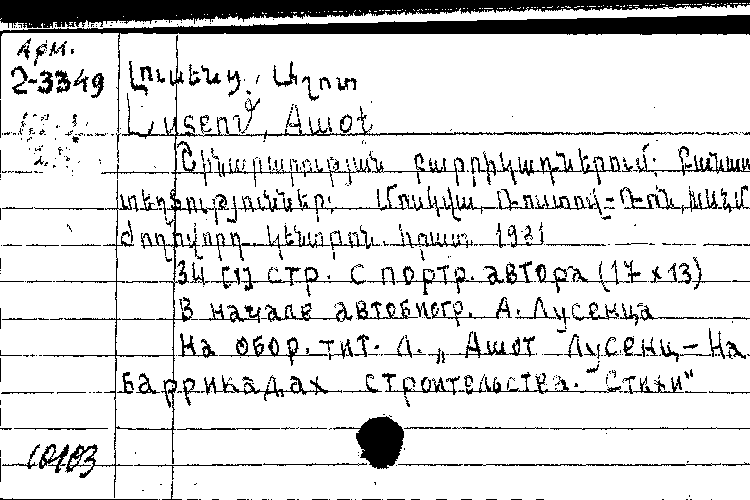 Арм.
2-3349
Լուսենց, Աշոտ
Lusenց, Ашоt
Շինարարության բարրիկադներում: Բանաս
տեղծություններ: Մոսկվա, Ռոստով-Ռ-ոն,
Ժողովորդ. կենտրոն. հրատ. 1931
34 [1] стр. с портр. автора (17 x 13)
В начале автобиогр. А. Лусенца
На обор. тит. л. „Ашот Лусенц - На
баррикадах строительства. Стихи"
10103